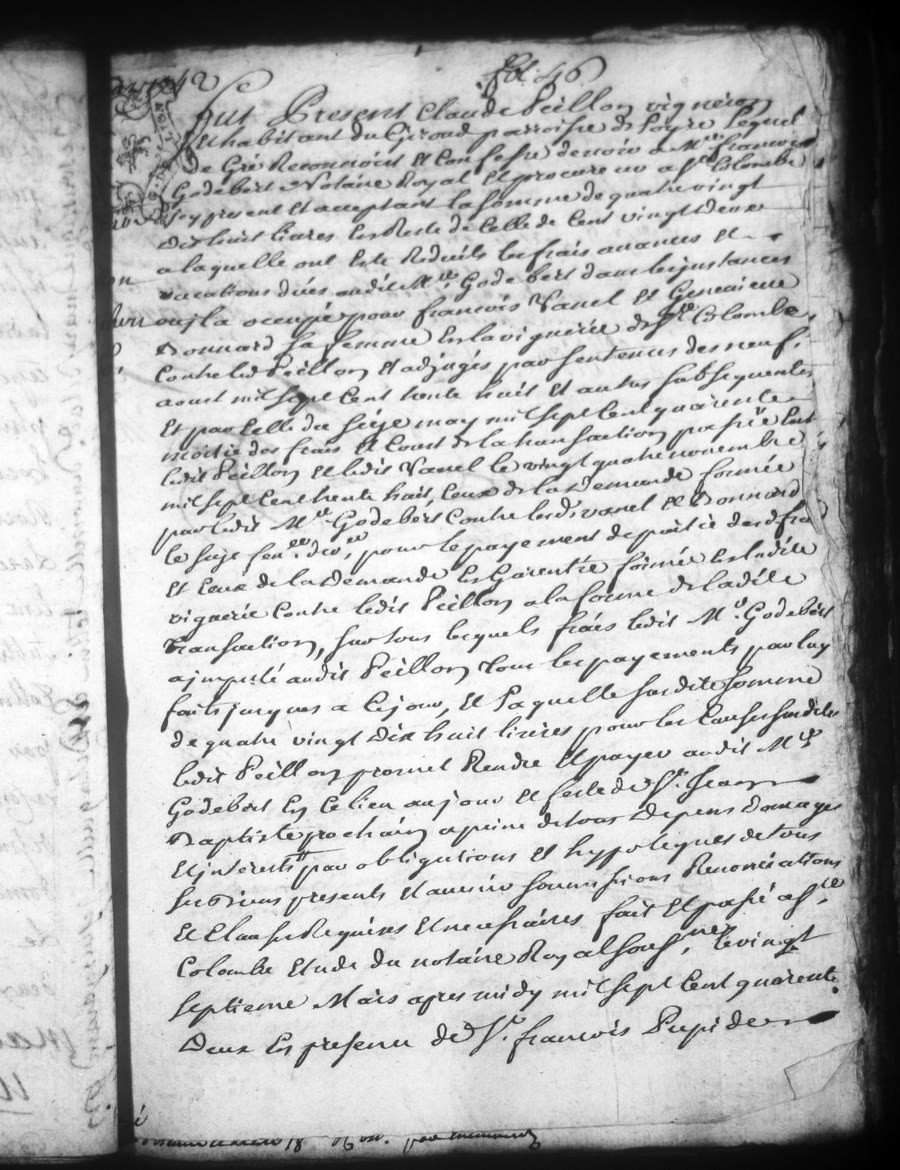 fol. 46
fut Present Claude Peillon vigneron
Et habitant du Giroud parroisse de Loyre lequel
de Gré Reconnoist Et Confesse devoir a Me. françois
Godebert Notaire Royal Et procureur a Ste Colombe
icy present Et acceptant la somme de quatre vingt
Dix huit livres En Reste de Celle de Cent vingt Deux
a laquelle ont Esté Reduits les frais avances Et
vacations dües audit Me. Godebert dans les instances
ou il a occupé pour françois Vanel Et Genevieve
Bonnard sa femme En la viguerie de Ste Colombe
Contre led. Peillon Et adjugés par sentences des neuf
aoust mil sept Cent trente huit Et autres subsequentes
Et par Celle du seize may mil sept Cent quarente
moitié des frais Et Coust de la transaction passée Entre
ledit Peillon Et ledit Vanel le vingt quatre novembre
mil sept Cent trente huit, Ceux de la Demande formée
par ledit Me. Godebert Contre lesd. vanel Et Bonnard
le seize fev. pour le payement de partie desd. frais
Et Ceux de la Demande En Garentie formée En ladite
viguerie Contre ledit Peillon a la forme de ladite
Transaction, sur tous lesquels frais ledit Me. Godebert
a imputé audit Peillon tous les payements par luy
faits jusques a Ce jour, Et laquelle susdite somme
de quatre vingt Dix huit livres pour les Causes susdites
ledit Peillon promet Rendre Et payer audit Me.
Godebert En Ce lieu au jour Et feste de St. Jean
Baptiste prochain a peine de tous Depens Domages
Et interests par obligations Et hypoteques de tous
ses Biens presents Et avenir soumissions Renonciations
Et Clauses Requises Et necessaires fait Et passé a Ste
Colombe Etude du notaire Royal sous.né, le vingt
septieme Mars apres midy mil sept Cent quarente
Deux En presence de Sr. françois Pupide